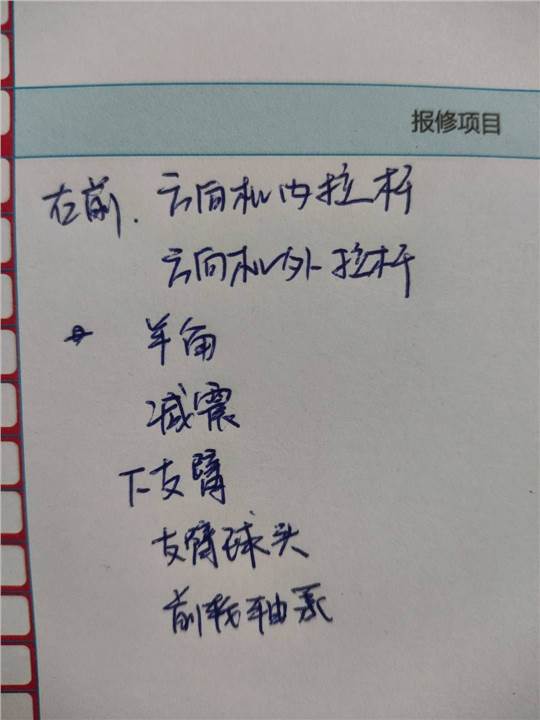 报修项目
右前.方向机内拉杆
方向机外拉杆
羊角
减震
下支臂
支臂球头
前轮轴承